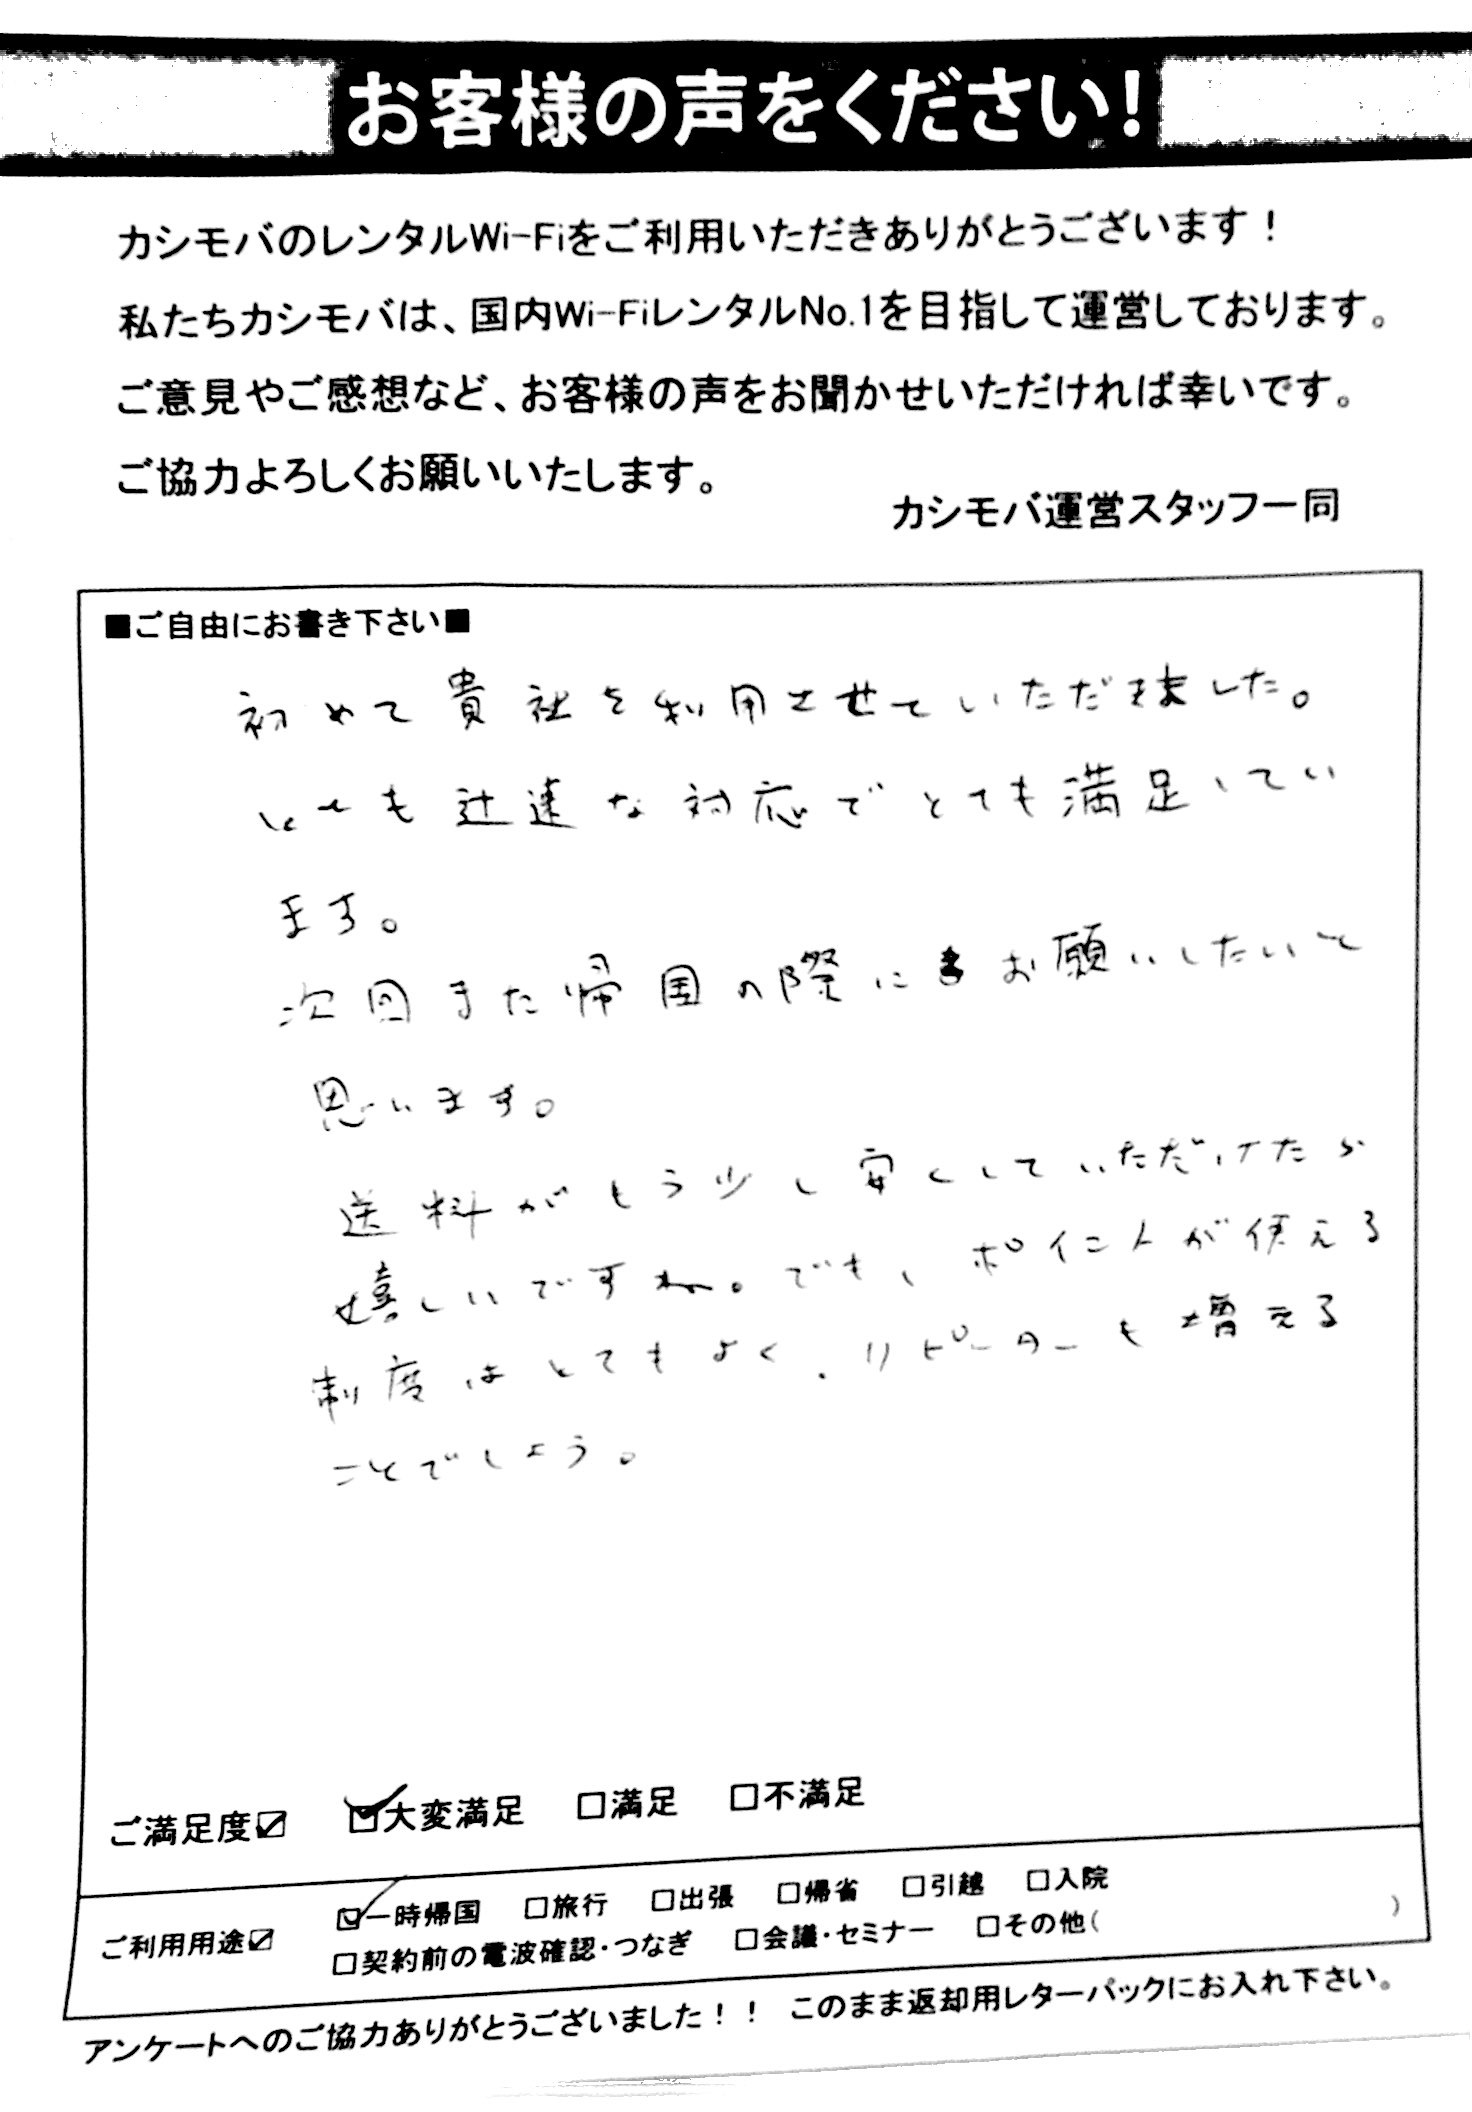 お客様の声をください!
カシモバのレンタルWi-Fiをご利用いただきありがとうございます!
私たちカシモバは、国内Wi-FiレンタルNo.1を目指して運営しております。
ご意見やご感想など、お客様の声をお聞かせいただければ幸いです。
ご協力よろしくお願いいたします。
カシモバ運営スタッフ一同
■ご自由にお書き下さい■
初めて貴社を利用させていただきました。
とても迅速な対応でとても満足してい
ます。
次回また帰国の際にもお願いしたいと
思います。
送料がもう少し安くしていただけたら
嬉しいですね。でも、ポイントが使える
制度はとてもよく、リピーターも増える
ことでしょう。
ご満足度☑ ☑大変満足 □満足 □不満足
ご利用用途☑ ☑一時帰国 □旅行 □出張 □帰省 □引越 □入院
□契約前の電波確認・つなぎ □会議・セミナー □その他( )
アンケートへのご協力ありがとうございました!! このまま返却用レターパックにお入れ下さい。